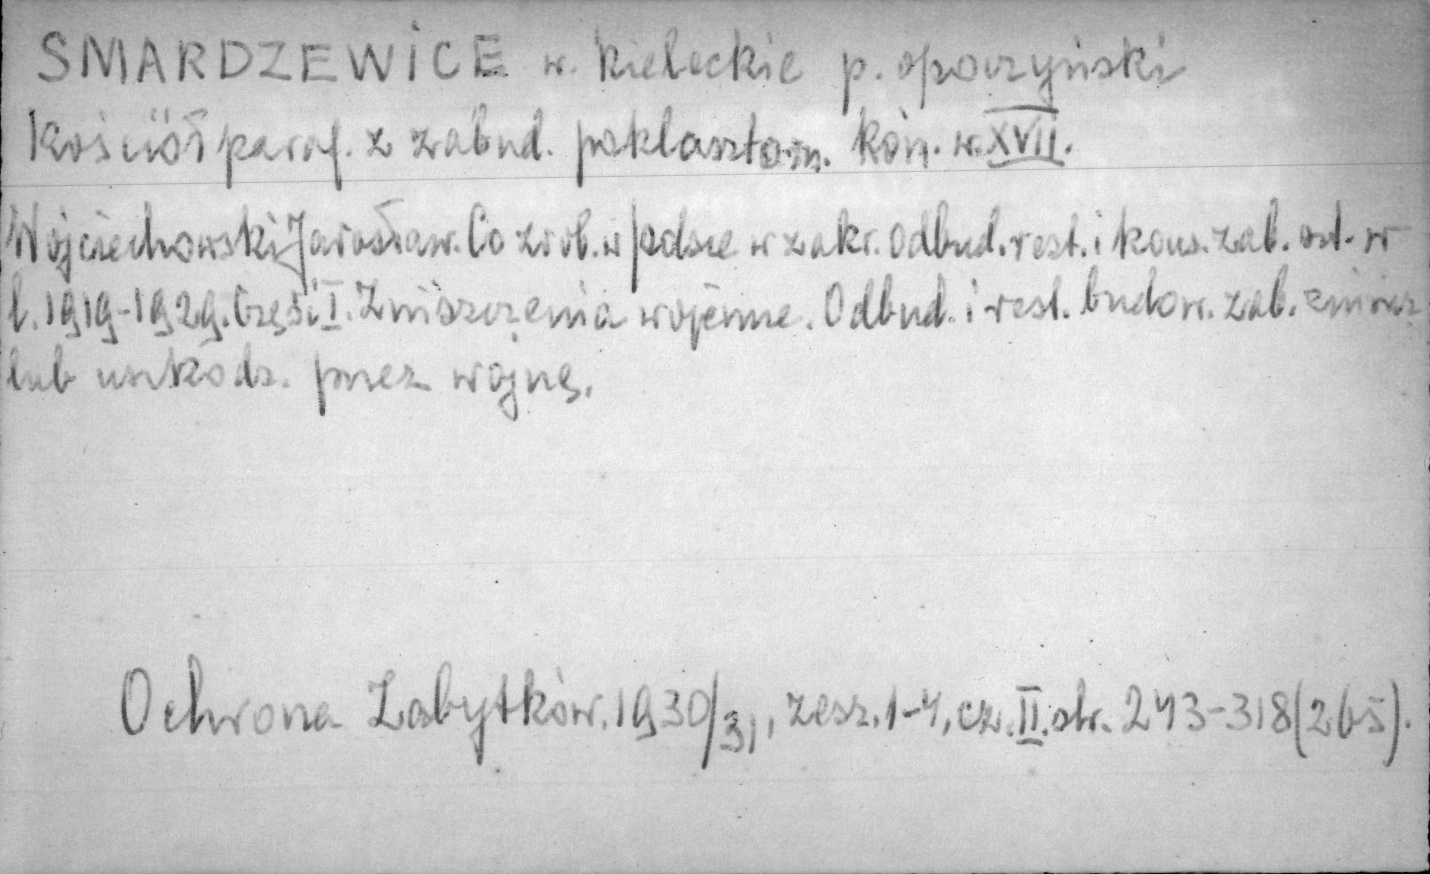 SMARDZEWICE w. kieleckie p. opoczyński
Kościół paraf. z zabud. poklasztorn. kon. w. XVII.
Wojciechowski Jarosław. Co zrob. w Polsce w zakr. odbud. rest. i kons. zab. od. w
l. 1919-1929. Część I. Zniszczenia wojenne. Odbud. i rest. budow. zab. zniszcz
lub uszkodz. przez wojnę.
Ochrona Zabytków. 1930/31, zesz. 1-4, cz. II. str. 243-318 (265).